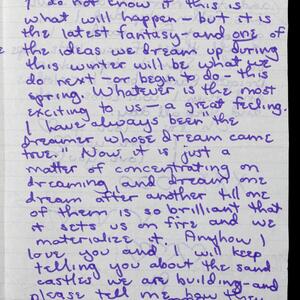 I do not know if this is
what will happen - but it is
the latest fantasy - and one of
the ideas we dream up during
this winter will be what we
do next - or begin to do - this
spring. Whatever is the most
exciting to us - a great feeling.
I have always been "the
dreamer whose dream came
true." Now it is just a
matter of concentrating on
dreaming, and dream one
dream after another till one
of them is so brilliant that
it sets us on fire and we
materialize it. Anyhow I
love you and I will keep
telling you about the sand
castles we are building - and
please tell me how